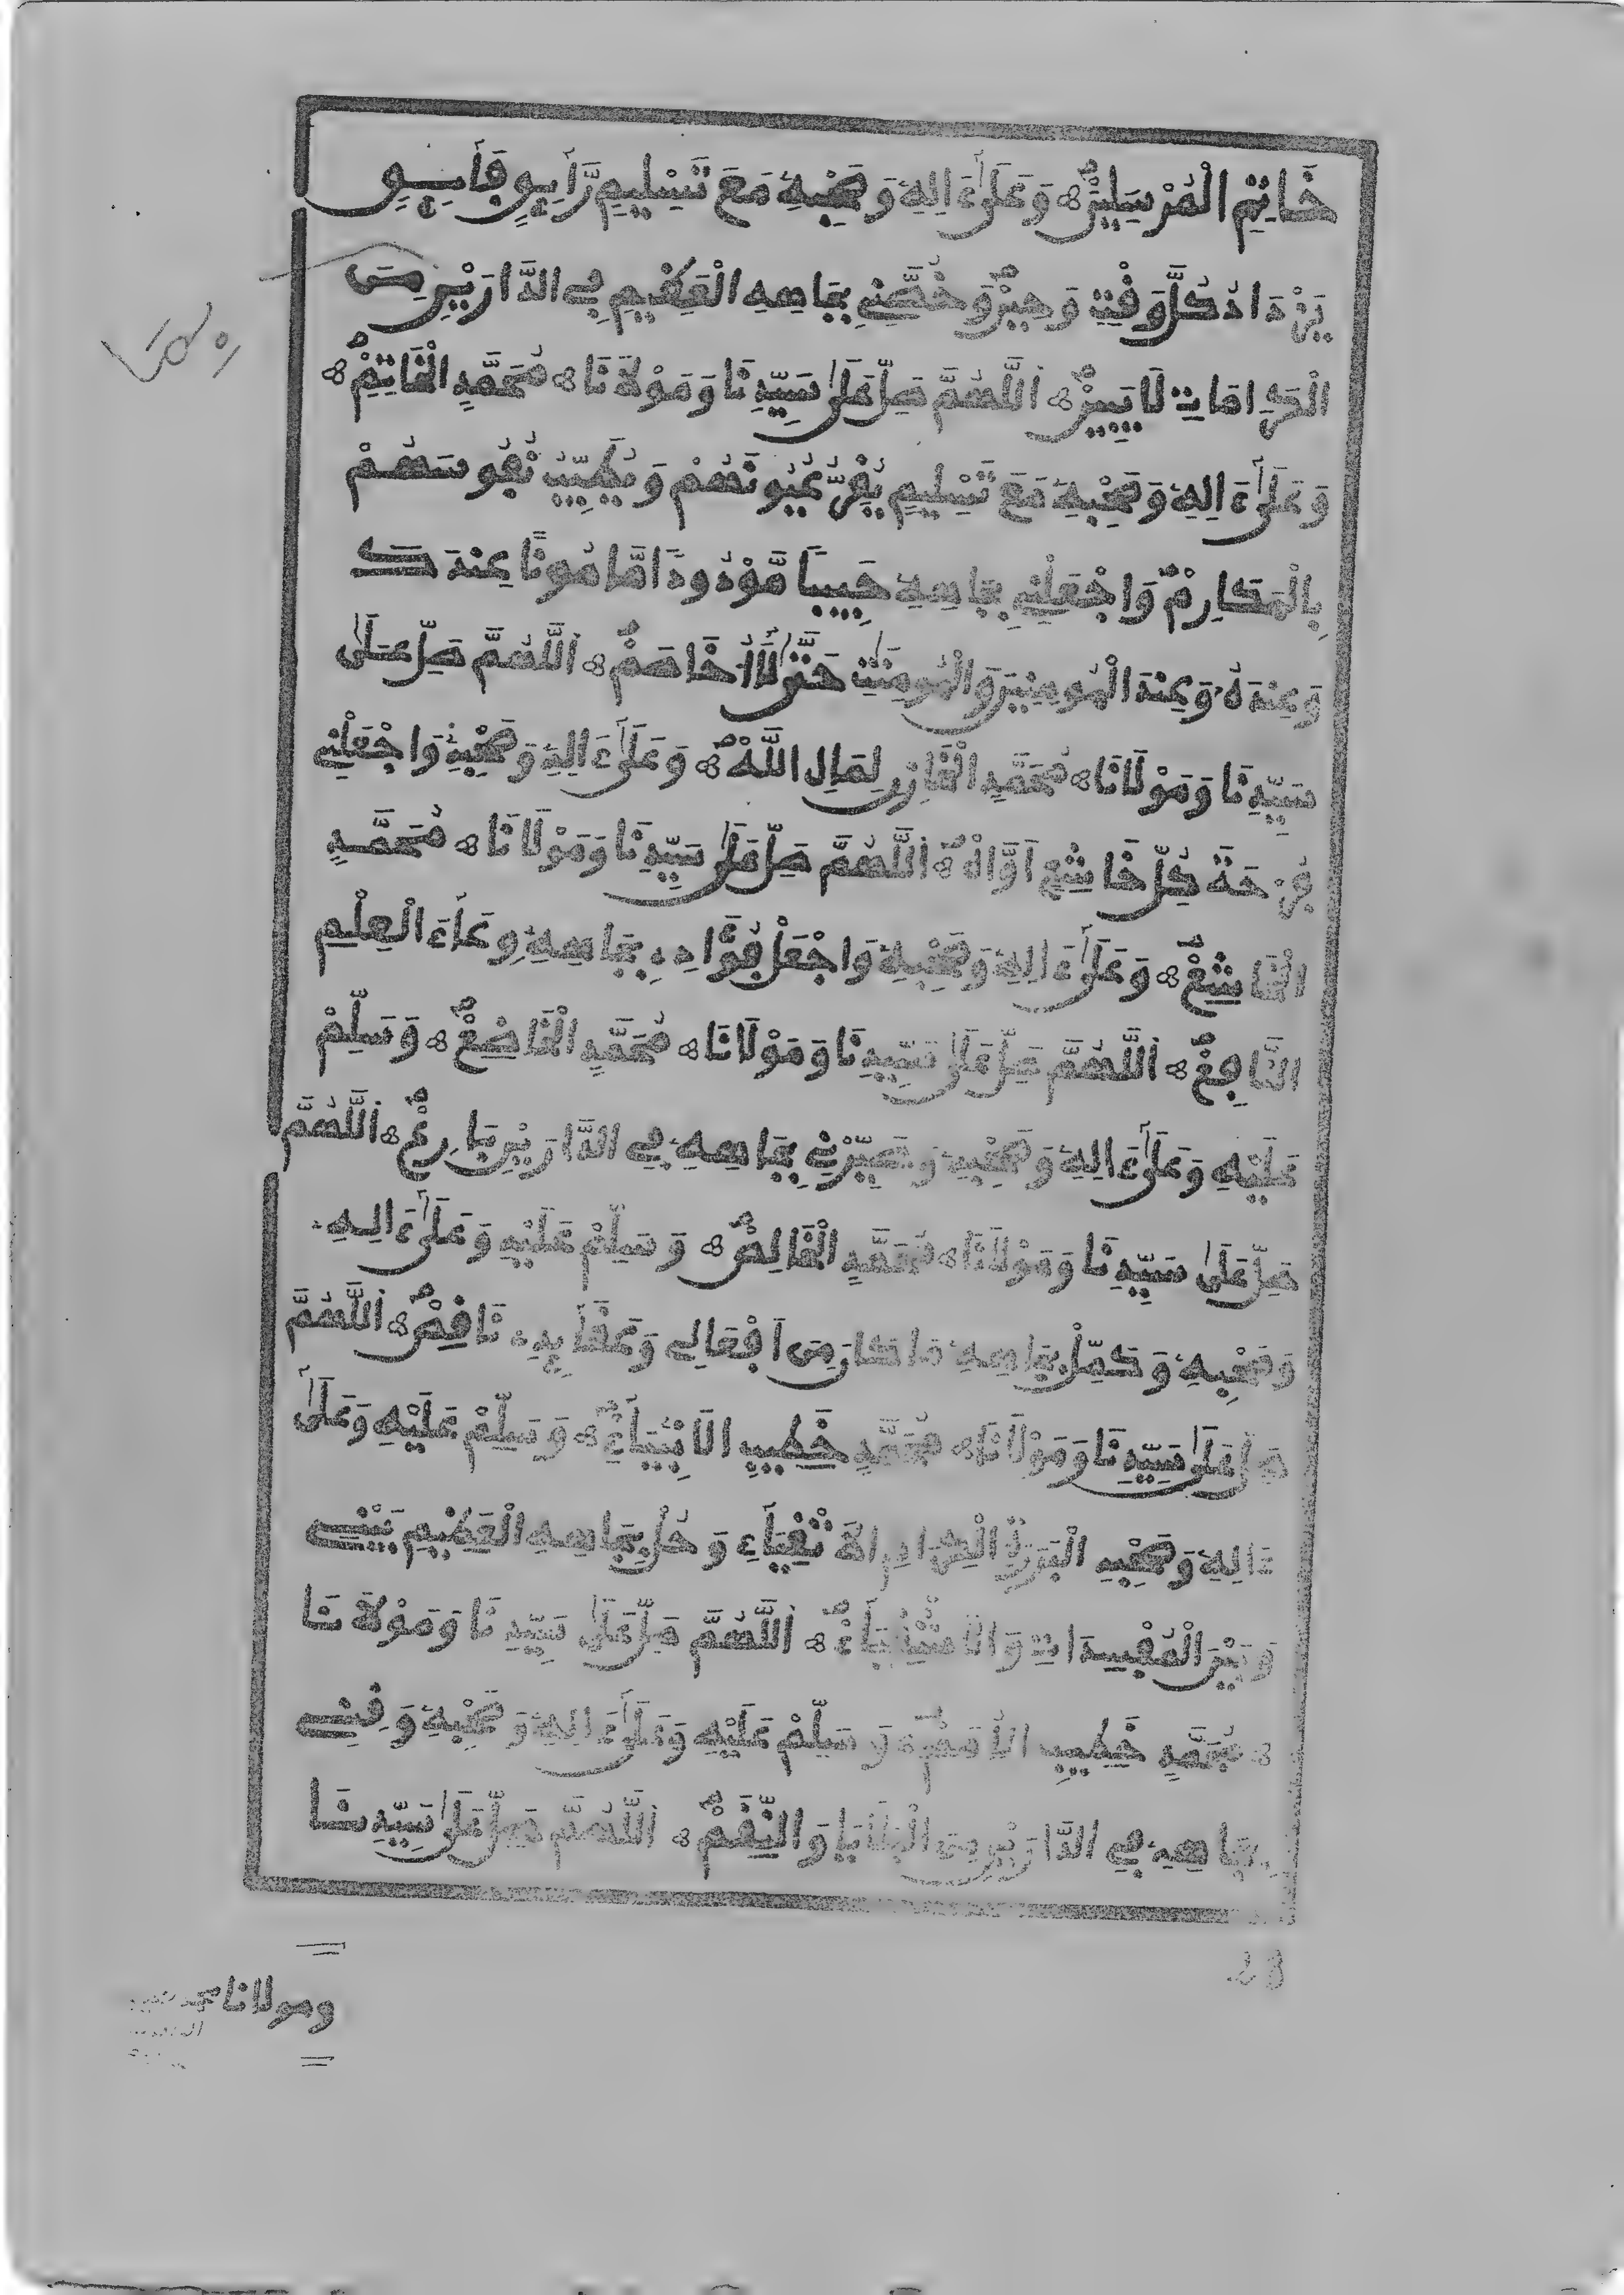 خَاتِمِ الْمُرْسَلِينْ وَعَلَىٰ ءَالِهِ وَصَحْبِهِ مَعَ تَسْلِيمٍ رَّآيِقٍ فَآيِقٍ
يَزْدَادُ كُلَّ وَقْتٍ وَحِينْ وَخُصَّنِي بِجَاهِهِ الْعَظِيمِ فِي الدَّارَيْنِ مِنَ
الْكَرَامَاتِ لَا يَبِينْ اَللَّهُمَّ صَلِّ عَلَىٰ سَيِّدِنَا وَمَوْلَانَا مُحَمَّدٍ الْخَاتِمْ
وَعَلَىٰ ءَالِهِ وَصَحْبِهِ مَعَ تَسْلِيمٍ يُقِرُّ عُيُونَهُمْ وَيُطَيِّبُ نُفُوسَهُمْ
بِالْمَكَارِمْ وَاجْعَلْنِي بِجَاهِهِ حَبِيبًا مَّوْدُودًا مَّامُونًا عِندَكَ
وَعِندَهُ وَعِندَ الْمُومِنِينَ وَالْمُومِنَٰتِ حَتَّىٰ لَا أُخَاصَمْ اَللَّهُمَّ صَلِّ عَلَىٰ
سَيِّدِنَا وَمَوْلَانَا مُحَمَّدٍ الْخَازِنِ لِمَالِ اللَّهْ وَعَلَىٰ ءَالِهِ وَصَحْبِهِ وَاجْعَلْنِي
فَرْحَةَ كُلِّ خَاشِعٍ اَوَّاهْ اَللَّهُمَّ صَلِّ عَلَىٰ سَيِّدِنَا وَمَوْلَانَا مُحَمَّدٍ
الْخَاشِعْ وَعَلَىٰ ءَالِهِ وَصَحْبِهِ وَاجْعَلْ فُؤَادِي بِجَاهِهِ وِعَاءَ الْعِلْمِ
النَّافِعْ اَللَّهُمَّ صَلِّ عَلَىٰ سَيِّدِنَا وَمَوْلَانَا مُحَمَّدٍ الْخَاضِعْ وَسَلِّمْ
عَلَيْهِ وَعَلَىٰ ءَالِهِ وَصَحْبِهِ وَصَيِّرْنِي بِجَاهِهِ فِي الدَّارَيْنِ بَارِعْ اَللَّهُمَّ
صَلِّ عَلَىٰ سَيِّدِنَا وَمَوْلَانَا مُحَمَّدٍ الْخَالِصْ وَسَلِّمْ عَلَيْهِ وَعَلَىٰ ءَالِهِ
وَصَحْبِهِ وَكَمِّلْ بِجَاهِهِ مَا كَانَ مِنَ اَفْعَالِي وَعَقَآيِدِي نَاقِصْ اَللَّهُمَّ
صَلِّ عَلَىٰ سَيِّدِنَا وَمَوْلَانَا مُحَمَّدٍ خَطِيبِ الَانْبِيَآءْ وَسَلِّمْ عَلَيْهِ وَعَلَىٰ
ءَالِهِ وَصَحْبِهِ الْبَرَرَةِ الْكِرَامِ الَاتْقِيَآءِ وَحُلْ بِجَاهِهِ الْعَظِيمِ بَيْنِي
وَبَيْنَ الْمُفْسِدَاتِ وَالَاشْقِيَآءْ اَللَّهُمَّ صَلِّ عَلَىٰ سَيِّدِنَا وَمَوْلَانَا
مُحَمَّدٍ خَطِيبِ الُامَمْ وَسَلِّمْ عَلَيْهِ وَعَلَىٰ ءَالِهِ وَصَحْبِهِ وَقِنِي
بِجَاهِهِ فِي الدَّارَيْنِ مِنَ الْبَلَايَا وَالنِّقَمْ اَللَّهُمَّ صَلِّ عَلَىٰ سَيِّدِنَا
28
ومولانا محمد